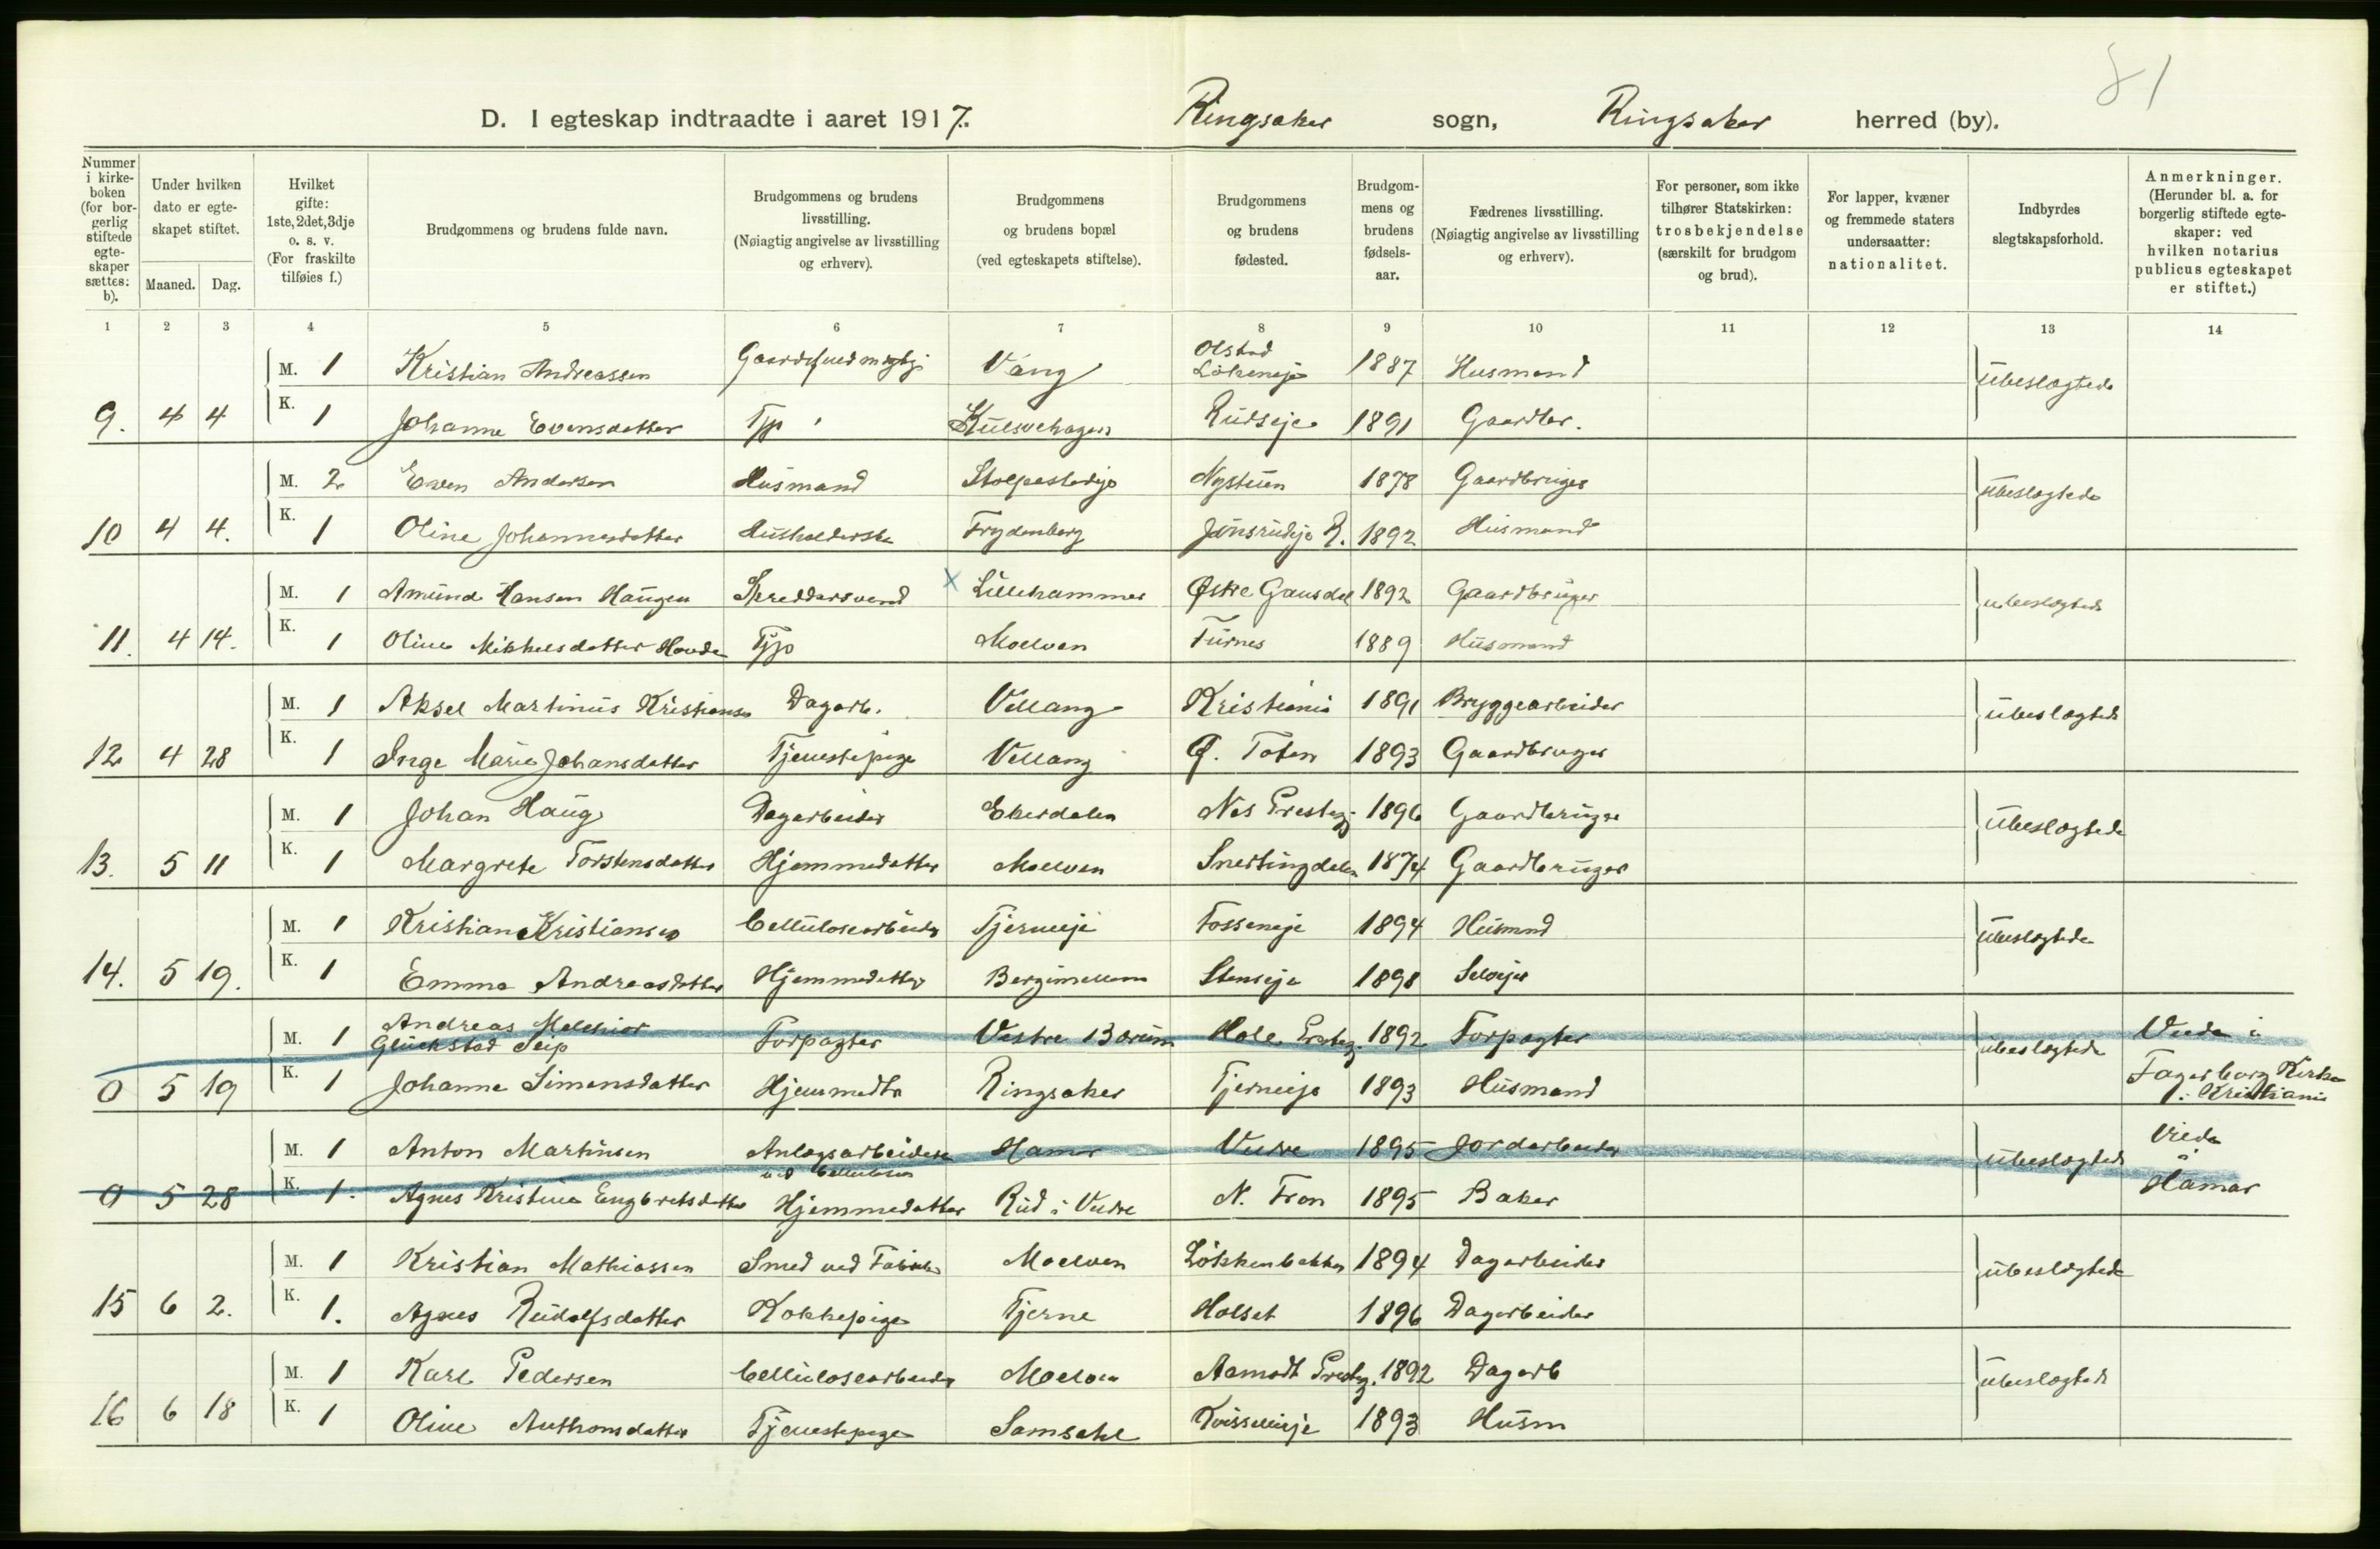 81
D. I egteskap indtraadte i aaret 1917. Ringsaker sogn, Ringsaker herred (by).
Nummer i kirkeboken (for borgerlig stiftede egteskaper sættes: b).
Under hvilken dato er egteskapet stiftet.
Maaned. Dag.
Hvilket gifte: 1ste, 2det, 3dje o. s. v. (For fraskilte tilføies f.)
Brudgommens og brudens fulde navn.
Brudgommens og brudens livsstilling. (Nøiagtig angivelse av livsstilling og erhverv).
Brudgommens og brudens bopæl (ved egteskapets stiftelse).
Brudgommens og brudens fødested.
Brudgommens og brudens fødselsaar.
Fædrenes livsstilling. (Nøiagtig angivelse av livsstilling og erhverv).
For personer, som ikke tilhører Statskirken: trosbekjendelse (særskilt for brudgom og brud).
For lapper, kvæner og fremmede staters undersaatter: nationalitet.
Indbyrdes slegtskapsforhold.
Anmerkninger. (Herunder bl. a. for borgerlig stiftede egteskaper: ved hvilken notarius publicus egteskapet er stiftet.)
1 2 3 4 5 6 7 8 9 10 11 12 13 14
M. 1 Kristian Andreassen Vang Olstad Løkeneje 1887 Husmand übeslegtede
9. 4 4 K. 1 Johanne Evensdatter Tjp Rüdseje 1891 Gaardbr.
M. 2 Even Andersen Hüsmand Stolpestadeje Nystüen 1878 Gaardbruger übeslegtede
10 4 4. K. 1 Oline Johannesdatter Hüsholderske Frydenberg Jønsrüdeje R. 1892 Hüsmand
M. 1 Amünd Hansen Haügen Skreddersvend x Lillehammer Østre Gausdal 1892 Gaardbrüger übeslegtede
11. 4 14. K. 1 Oline Mikkelsdatter Hovde Tjp Moelven Fürnes 1889 Hüsmand
M. 1 Aksel Martinüs Kristiansen Dagarb. Vellang Kristiania 1891 Bryggearbeider übeslegtede
12 4 28 K. 1 Inge Marie Johansdatter Tjenestepige Vellang Ø. Toten 1893 Gaardbruger
M. 1 Johan Haüg Dagarbeider Ekerdalen Nes Prestegj. 1896 Gaardbrüger übeslegtede
13. 5 11 K. 1 Margrete Torstensdatter Hjemmedatter Moelven Snertingdalen 1874 Gaardbrüger
M. 1 Kristian Kristiansen Cellülosearbeider Tjerneeje Fosseneje 1894 Hüsmand übeslegtede
14. 5 19. K. 1 Emma Andreasdatter Hjemmedatter Bergimellem Stenseje 1898 Selvejer
M. 1 Andreas Melchior Glückstad Seip Forpagter Vestre Bærüm Hole Presteg. 1892 Forpagter übeslegtede Viede i
0 5 19 K. 1 Johanne Simensdatter Hjemmedtr Ringsaker Tjerneeje 1893 Hüsmand Fagerborg Kirke i Kristiania
M. 1 Anton Martinsen Anlægsarbeider ved Cellulosen Hamar Vüdre 1895 Jordarbeider übeslegtede Viede i
0 5 28 K. 1. Agnes Kristine Engbretsdatter Hjemmedatter Rüd i Vüdre N. Fron 1895 Baker Hamar
M. 1 Kristian Mathiassen Smed ved Fabrik Moelven Løkkenbakken 1894 Dagarbeider übeslegtede
15 6 2. K. 1. Agnes Rüdolfsdatter Kokkepige Tjerne Holset 1896 Dagarbeider
M. 1 Karl Pedersen Cellülosearbeider Moelven Aamodt Presteg. 1892 Dagarb übeslegtede
16 6 18 K. 1 Oline Anthonsdatter Tjenestepige Samsahl 1893 Hüsm